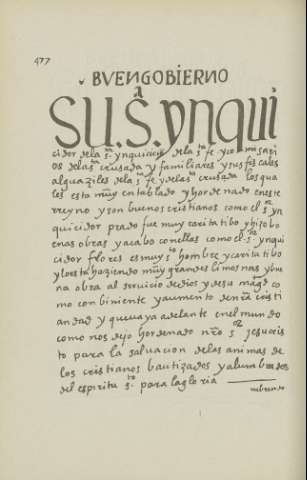 477
BVEN GOBIERNO
SU. Sᵃ ynqui
cidor de la sᵗᵃ ynquicicion de la sᵗᵃ fe y comisari
os de la sᵗᵃ crusada y familiares y sus fescales
alguaziles de la sᵗᵃ fe y de la sᵗᵃ crusada los qua
les esta muy entablado y hordenado en este
rreyno y son buenos cristianos como el sᵗᵒʳ yn
quicidor prado fue muy caritatibo y hizo bo
enas obras y acabo con ellas como el sᵗᵒʳ ynqui
cidor flores es muy sᵗᵒ hombre y caritatibo
y lo esta haziendo muy grandes limosnas y bue
na obra al seruicio de dios y de su magᵈ co
mo conbiniente y aumento de nrᵃ cristi
andad y que uaya adelante en el mundo
como nos dejo hordenado nrᵒ sᵒʳ jesucris
to para la saluacion de las animas de
los cristianos bautizados y alumbrados
del espiritu sᵗᵒ para la gloria